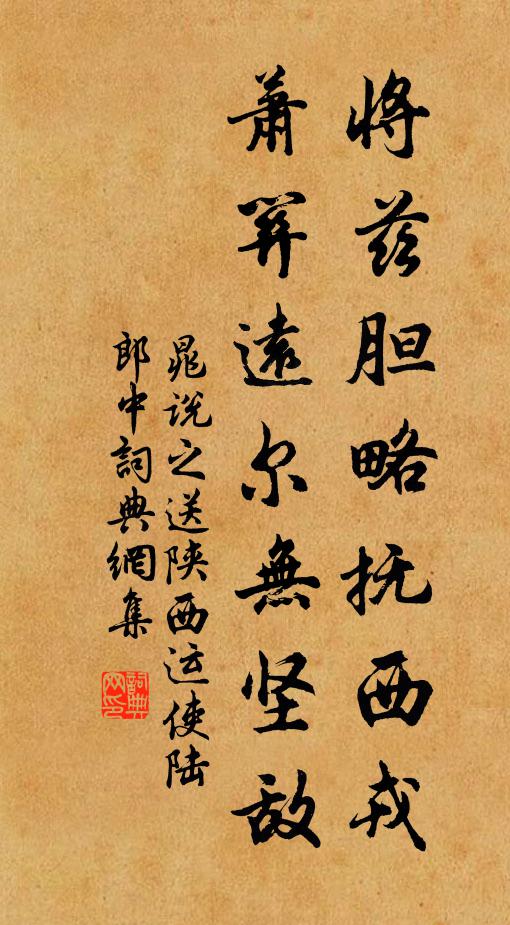 将兹胆略抚西戎
萧笄遠尔無坚敌
晁说之送陕西运使陆
郎中詞典網集
詞典網印